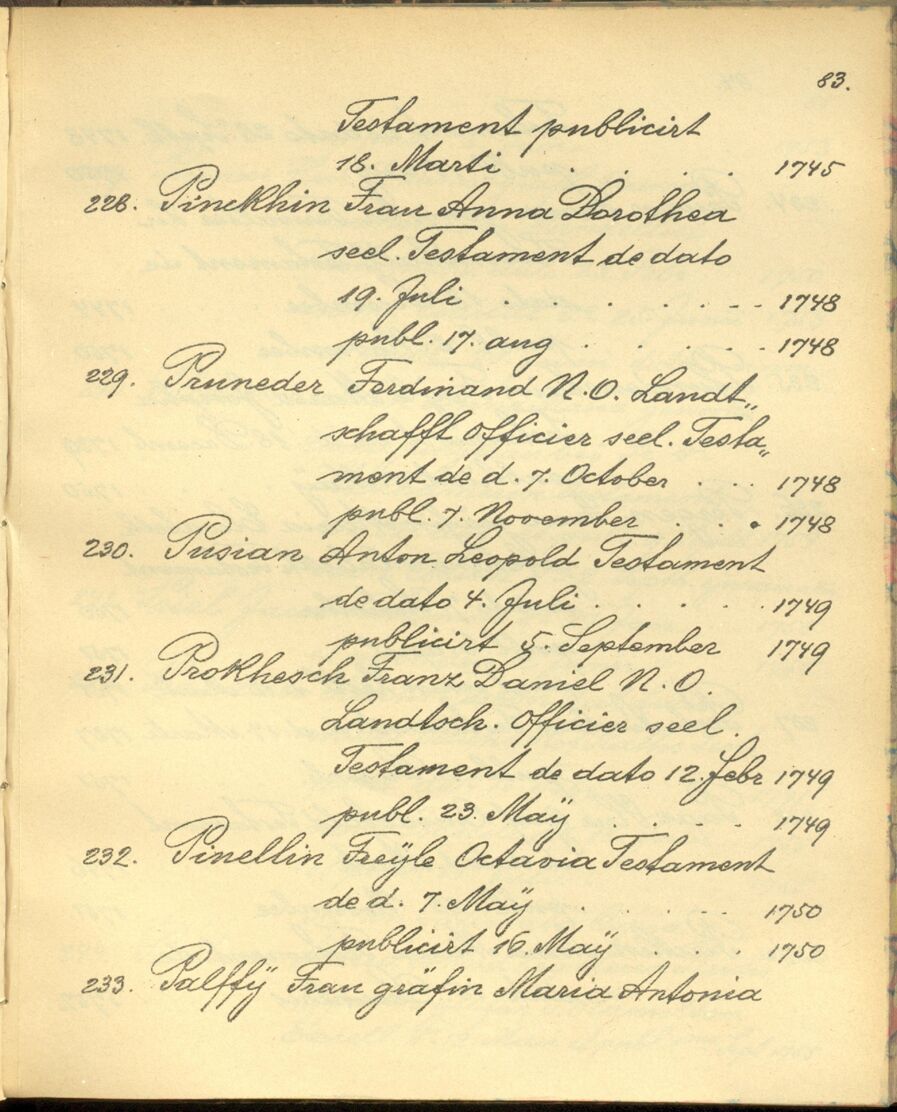 83.
Testament publicirt
18. Marti . . . . . 1745
228. Pinckhin Frau Anna Dorothea
seel. Testament de dato
19. Juli . . . . . - - 1748
publ. 17. aug . . . . . 1748
229. Pruneder Ferdinand N. O. Landt„
schafft Officier seel. Testa„
ment de d. 7. October . . . 1748
publ. 7. November . . . 1748
230. Pusian Anton Leopold Testament
de dato 4. Juli . . . . . 1749
publicirt 5. September 1749
231. Prokhesch Franz Daniel N. O.
Landtsch. Officier seel.
Testament de dato 12. Febr 1749
publ. 23. Maÿ . . . . 1749
232. Pinellin Freÿle Octavia Testament
de d. 7. Maÿ . . . . . 1750
publicirt 16. Maÿ . . . . 1750
233. Palffÿ Frau gräfin Maria Antonia